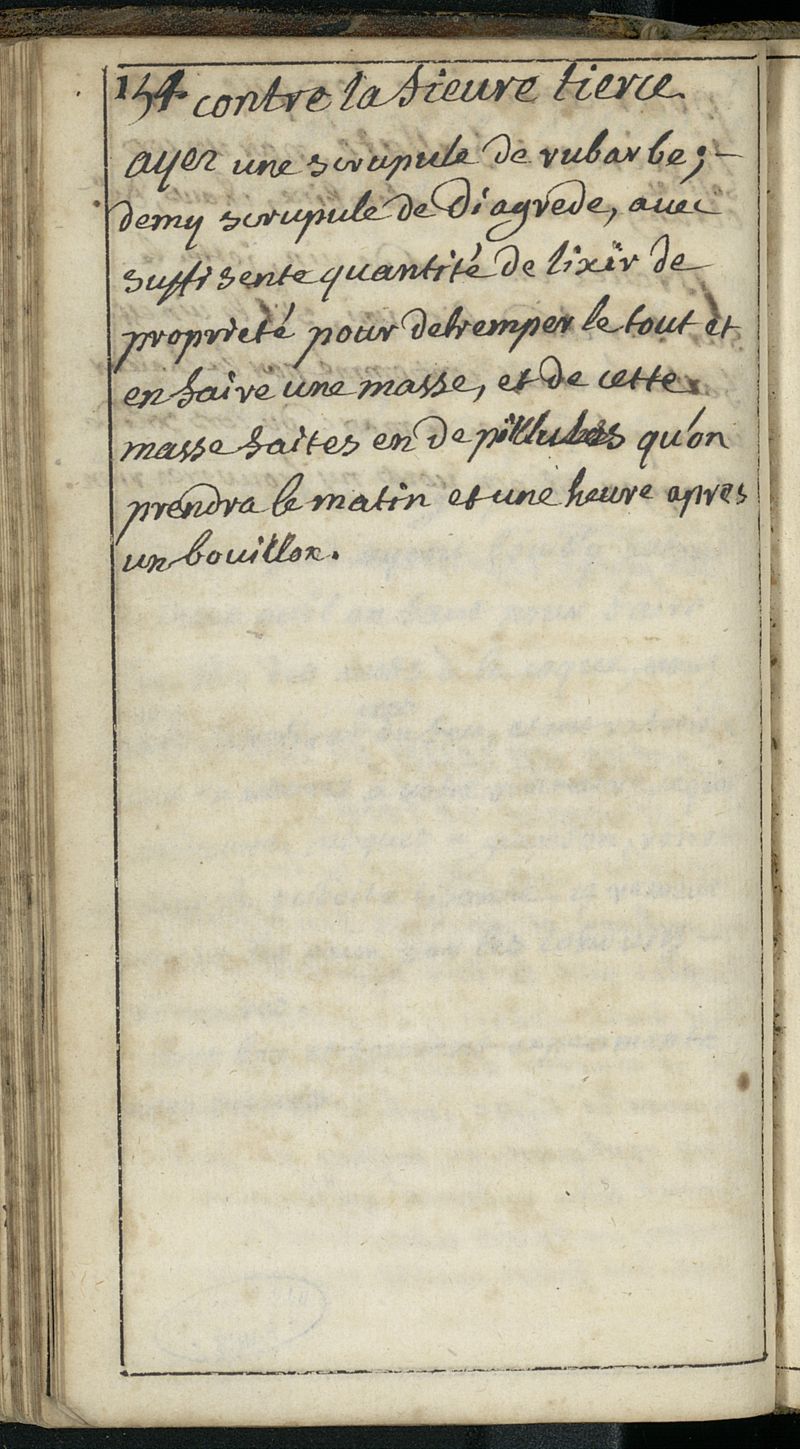 154 contre la fieure tierce
ayez une scrupule de rubarbe ; -
demy scrupule de diagrede, auec
suffisente quantité de lixir de
proprieté pour detremper le tout et
en faire une masse, et de cette
masse faites en de pillules qu'on
prendra le matin et une heure apres
un bouillon.